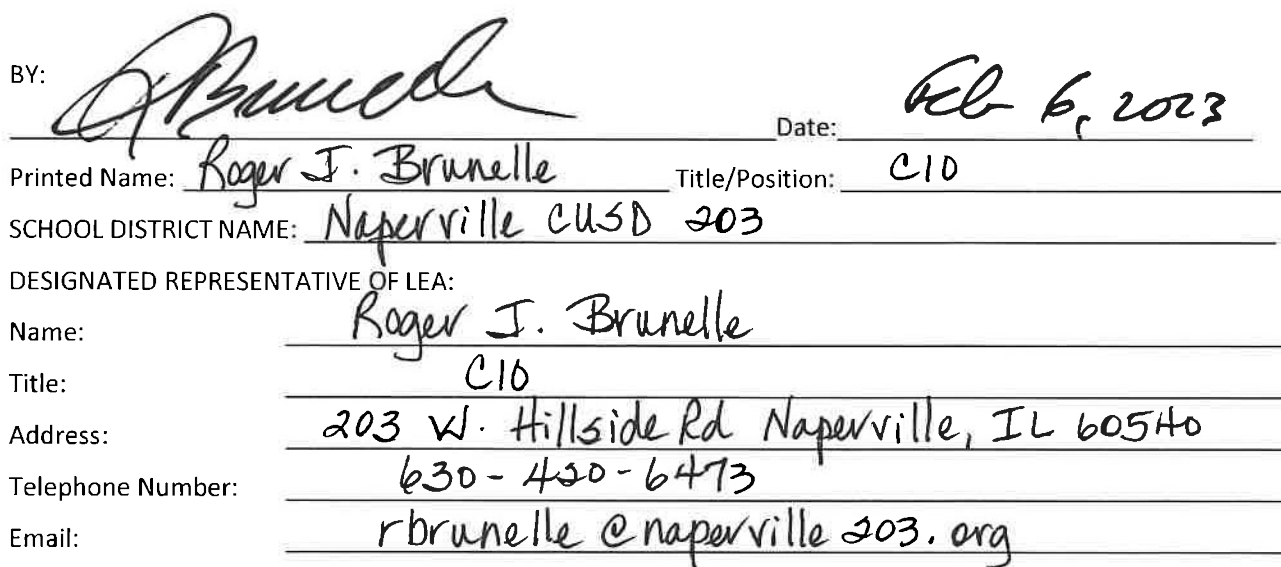 BY: RBrunelle Date: Feb 6, 2023
Printed Name: Roger J. Brunelle Title/Position: CIO
SCHOOL DISTRICT NAME: Naperville CUSD 203
DESIGNATED REPRESENTATIVE OF LEA:
Name: Roger J. Brunelle
Title: CIO
Address: 203 W. Hillside Rd Naperville, IL 60540
Telephone Number: 630-420-6473
Email: rbrunelle@naperville203.org